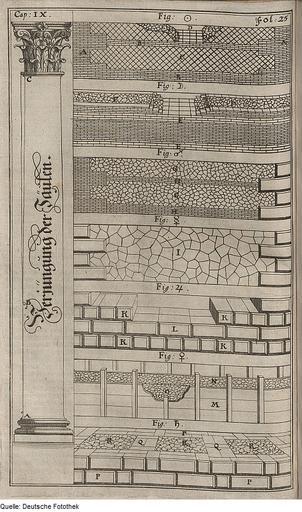 Cap: IX.
Fig: ☉.
fol: 25
A
C
Fig: ☽.
E
E
Fig: ♂.
G
H
G
H
Fig: ☿
I
Fig: ♃
K
K
L
K
K
Fig: ♀
N
M
Fig: ♄
P
R
Q
R
Q
R
P
P
Verjungung der Säulen.
A
Quelle: Deutsche Fotothek